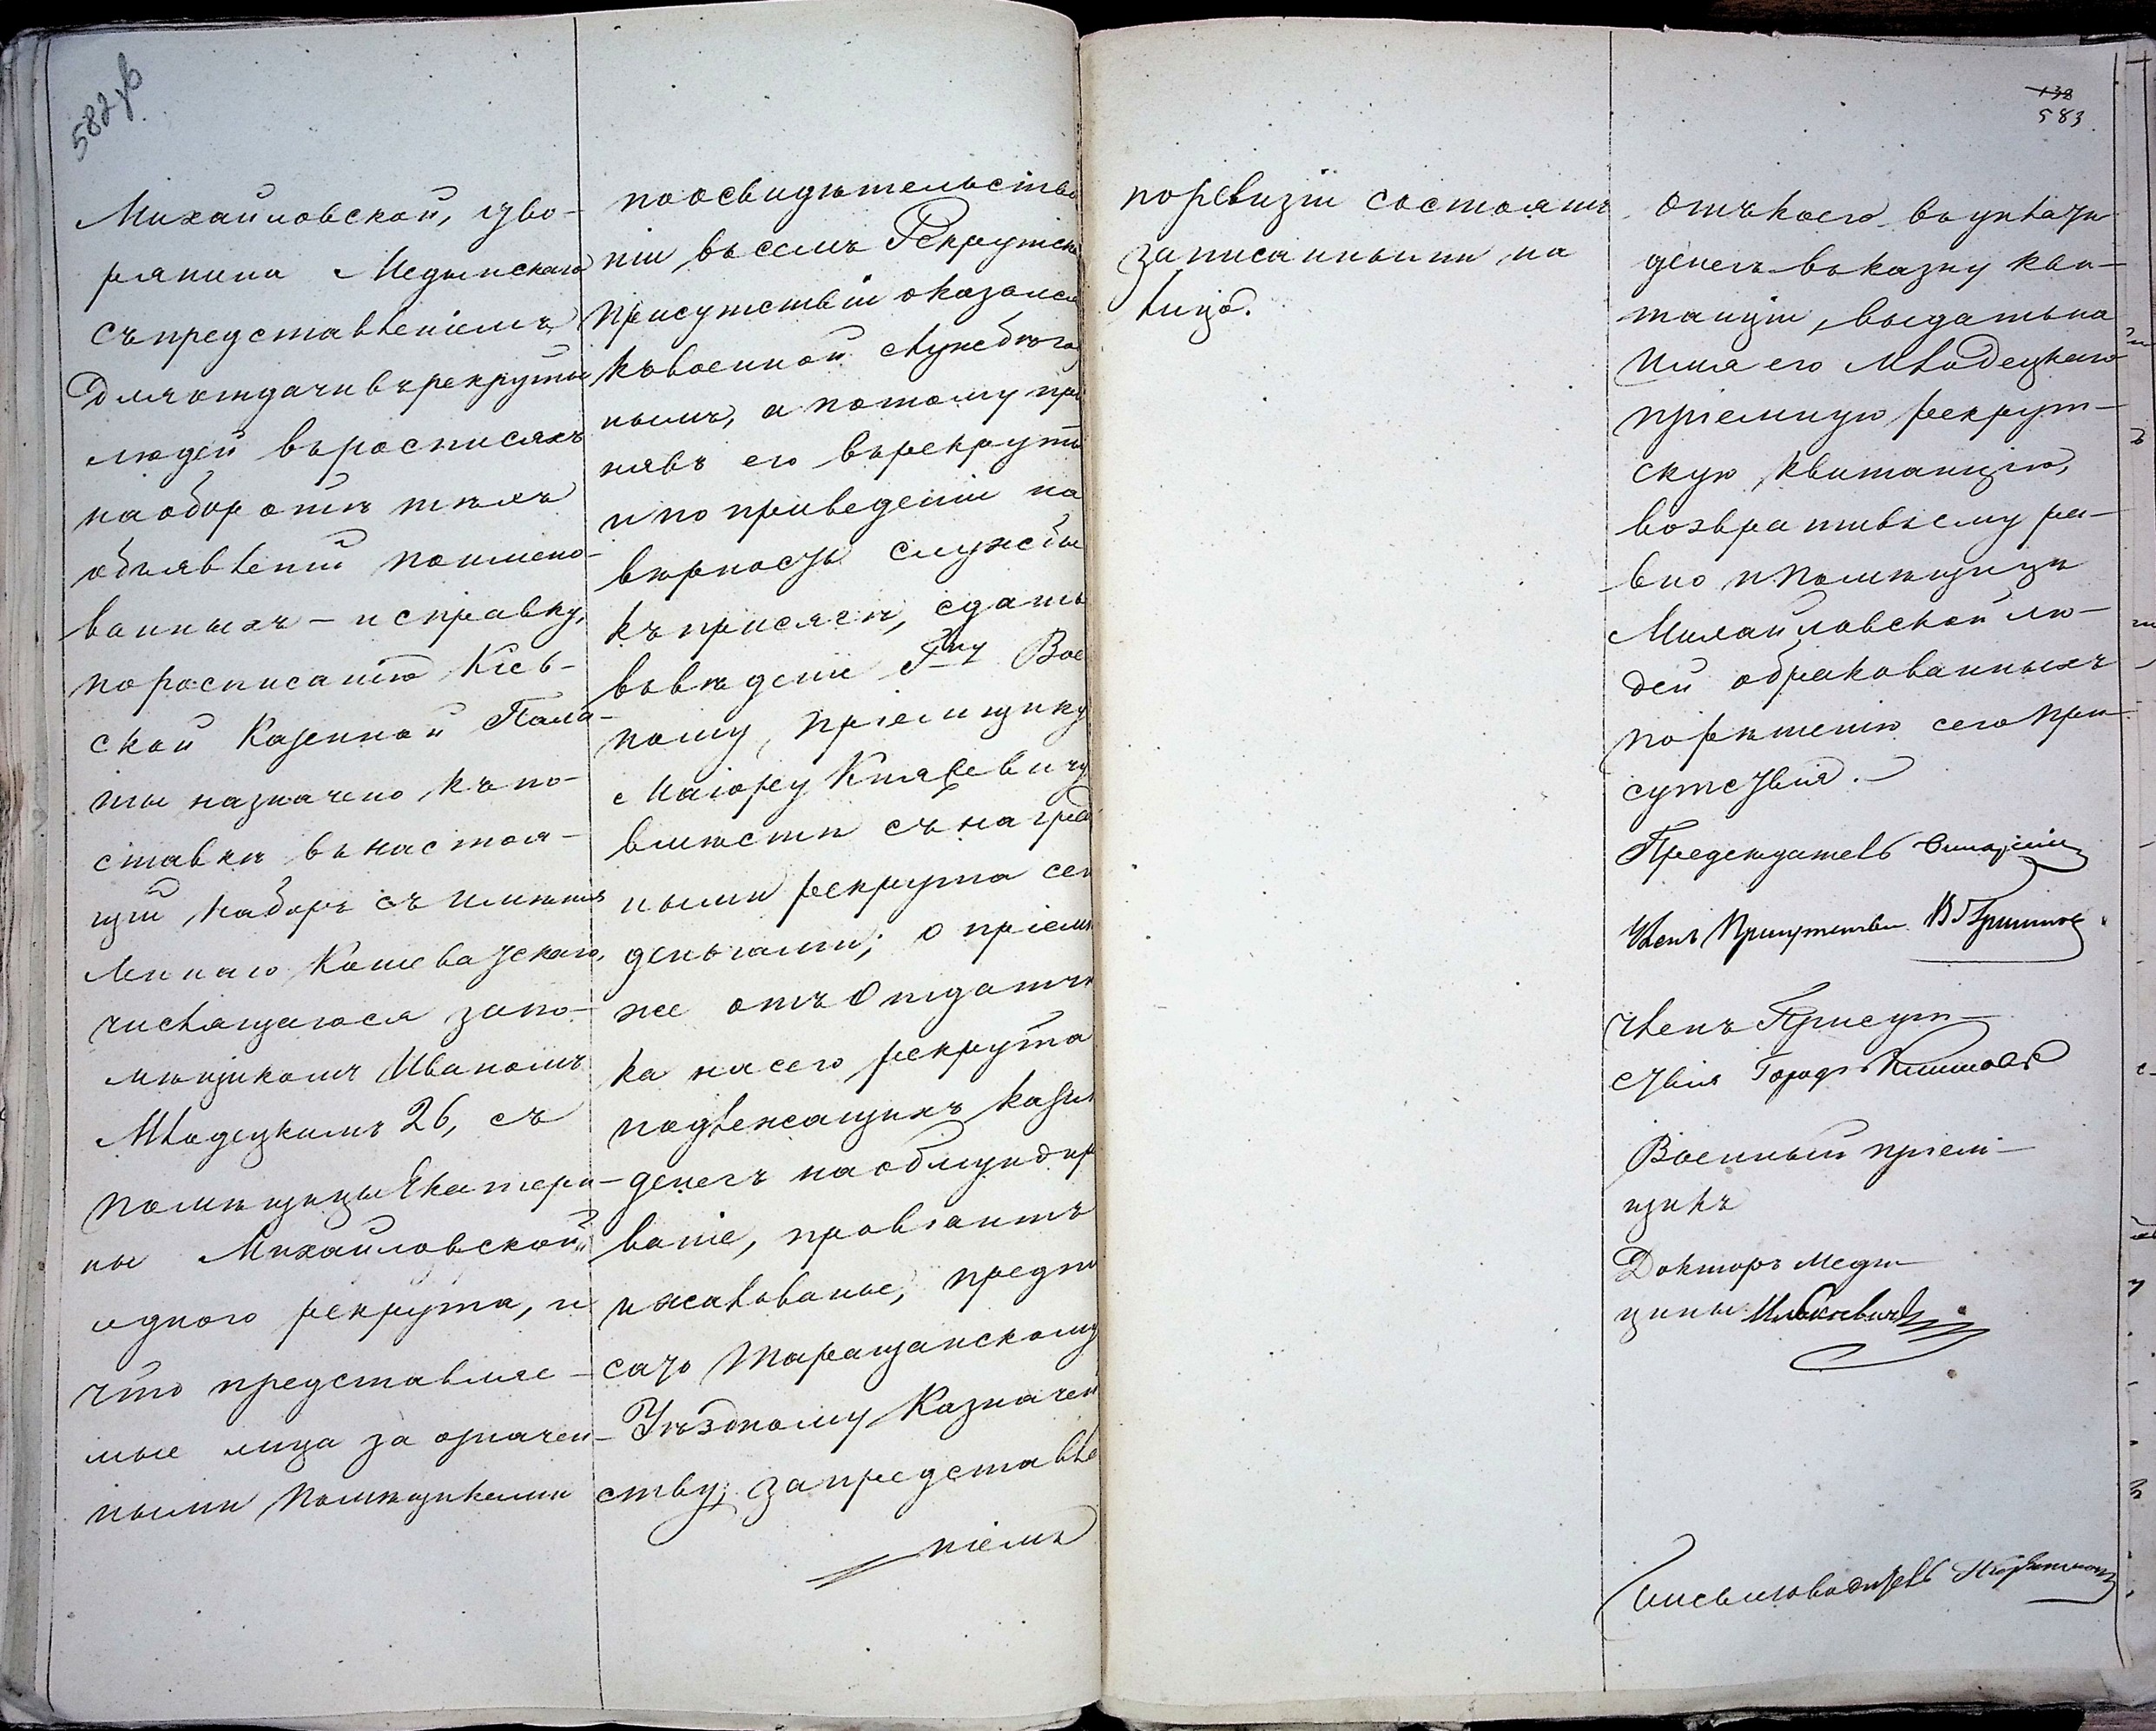 582 об
Михайловской, дво-
рянина Медынскаго
съ представленіемъ
для отдачи въ рекруты
людей въ росписяхъ
на оборотѣ тѣхъ
объявленій поимено-
ванныхъ – и справку,
по росписанію Кіев-
ской Казенной Пала-
ты назначено къ по-
ставкѣ въ настоя-
щій наборъ съ имѣнія
Кошеватскаго,
числящагося за по-
мѣщикомъ Иваномъ
Млодецкимъ 26, съ
помѣщицы Екатери-
ны Михайловской
одного рекрута, и
что представляе-
мые лица за означен-
ными помѣщиками
по освидѣтельство
ніи въ семъ Рекрутско
Присутствіи оказался
къ военной службѣ год
нымъ, а потому при
нявъ его въ рекруты
и по приведеніи на
вѣрность службы
къ присягѣ, сдать
въ вѣденіе Гну Вое
ному пріемщику
Маіору Княжевичу
вмѣстѣ съ наград
ными рекрута сего
деньгами; о пріемѣ
же отъ Отдатчи
ка на сего рекрута
подлежащихъ казнѣ
денегъ на обмундир
ваніе, провіантъ
и жалованье, предпи
сать Таращанскому
Уѣздному Казначей
ству; за представле
ніемъ
по ревизіи состоятъ
записанными на
лицо.
138
583
отъ коего въ уплатѣ
денегъ въ казну кви-
танціи, выдать на
имя его Млодецкаго
пріемную рекрут-
скую квитанцію,
возвративъ ему ра-
вно и помѣщицѣ
Михайловской лю-
дей обракованныхъ
по рѣшенію сего При-
сутствія.
Предсѣдатель
Членъ Присутствія
Членъ Присут-
ствія Город.
Военный пріем-
щикъ
Докторъ Меди-
цины
Письмоводитель